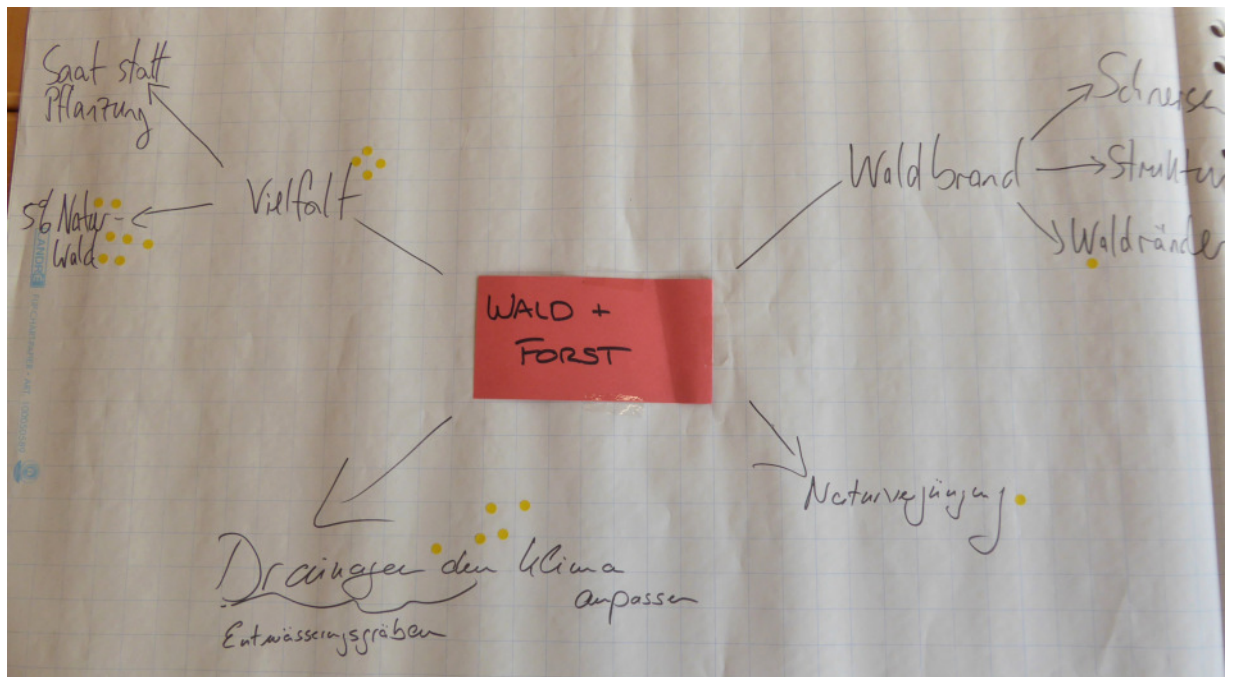 Saat statt
Pflanzung
Vielfalt
5% Natur-
Wald
Waldbrand
Schneisen
Struktur
Waldränder
WALD +
FORST
Naturverjüngung
Drainagen dem Klima
anpassen
Entwässerungsgräben